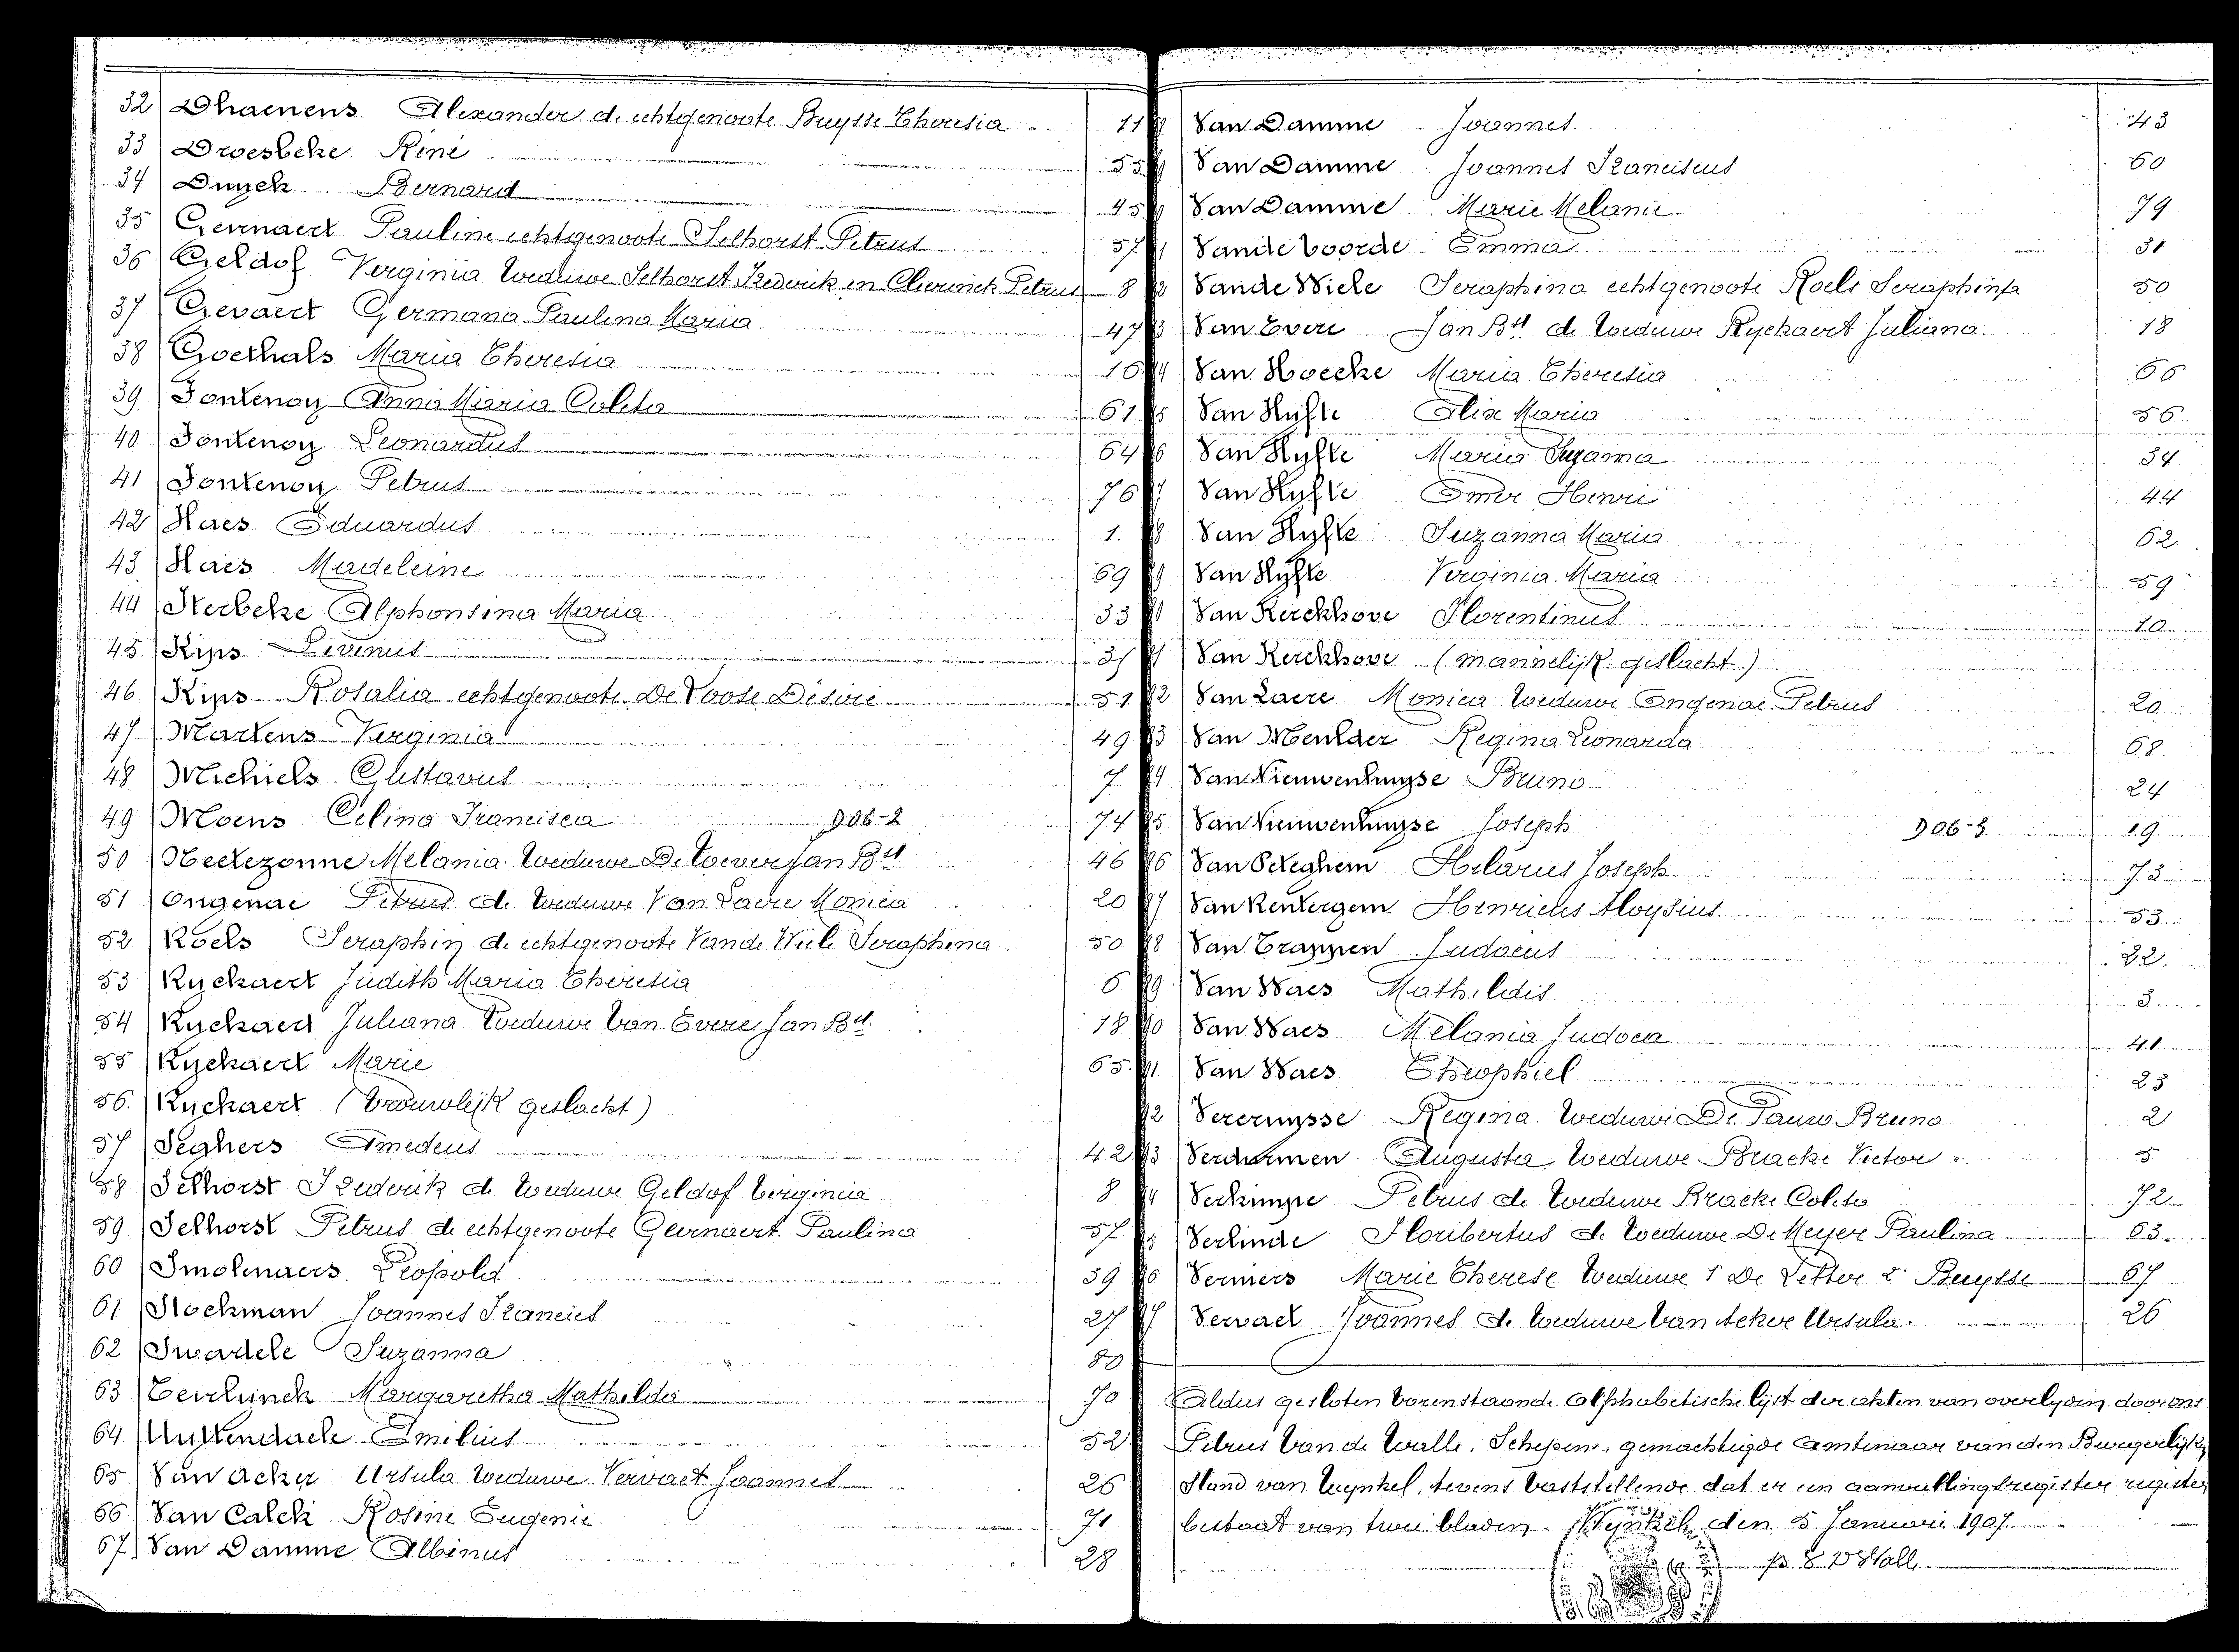 32 Dhaenens Alexander de echtgenoote Buysse Theresia 11
33 Droesbeke Réné 55
34 Duych Bernard 45
35 Geirnaert Pauline echtgenoote Selhorst Petrus 57
36 Geldof Verginia Weduwe Selhorst Frederik en Petrus 8
37 Gevaert Germana Paulina Maria 47
38 Goethals Maria Theresia 16
39 Fontenoy Anna Maria Coleta 61
40 Fontenoy Leonardus 64
41 Fontenoy Petrus 76
42 Haes Eduardus 1.
43 Haes Madeleine 69
44 Herbeke Alphonsina Maria 33
45 Kips Livinus
46 Kips Rosalia echtgenoote De Poote Désiré 51
47 Martens Verginia 49
48 Michiels Gustavus 7
49 Moens Celina Francisca D06-2 74
50 Melania Weduwe De Jan Bte 46
51 Ongenae Petrus de Weduwe Van Laere Monica 20
52 Roels Seraphin de echtgenoote Vande Wiele Seraphina 50
53 Ryckaert Judith Maria Theresia 6
54 Ryckaert Juliana Weduwe Van Evere Jan Bte 18
55 Ryckaert Marie 65.
56. Ryckaert (Vrouwelijk geslacht)
57 Seghers Amedeus 42
58 Selhorst Frederik de Weduwe Geldof Virginia 8
59 Selhorst Petrus de echtgenoote Geirnaert Paulina 57
60 Smolenaers Leopold 39
61 Stockman Joannes Francies 27
62 Suzanna 80
63 Margaretha Mathilda 70
64 Uyttendaele Emilius 52
65 Van Acker Ursula Weduwe Vervaet Joannes 26
66 Van Calck Rosine Eugenie 71
67 Van Damme Albinus 28
Van Damme Joannes 43
Van Damme Joannes Franciscus 60
Van Damme Marie Melanie 79
Vande Voorde Emma 31
Vande Wiele Seraphina echtgenoote Roels Seraphinfa 50
Van Evere Jan Bte de Weduwe Ryckaert Juliana 18
Van Hoecke Maria Theresia 66
Van Hyfte Elisa Maria 56
Van Hyfte Maria Suzanna 34
Van Hyfte Omer Henri 44
Van Hyfte Suzanna Maria 62
Van Hyfte Verginia Maria 59
Van Kerckhove Florentinus 10
Van Kerckhove (mannelijk geslacht)
Van Laere Monica Weduwe Ongenae Petrus 20
Van Meulder Regina Leonarda 68
Van Nieuwenhuyse Bruno 24
Van Nieuwenhuyse Joseph D06-3 19
Van Peteghem Hilarius Joseph 73
Van Rentergem Henricus Aloysius 53
Van Trappen Judocus 22.
Van Waes Mathildis 3
Van Waes Melania Judoca 41
Van Waes Theophiel 23
Vercruysse Regina Weduwe De Pauw Bruno 2
Augusta Weduwe Bracke Victor 5
Petrus de Weduwe Bracke Coleta 72
Verlinde Floribertus de Weduwe De Meyer Paulina 63
Marie Therese Weduwe 1 De Letter 2 Buysse 67
Vervaet Joannes de Weduwe Van Acker Ursula 26
Aldus gesloten vorenstaande alphabetische lijst der akten van overlyden door ons
Petrus Van de Walle, Schepen, gemachtigde ambtenaar van den Burgerlijke
Stand van Wynkel, tevens vaststellende dat er een aanvullingsregister register
bestaat van twee bladen. Wynkel, den 5 Januari 1907